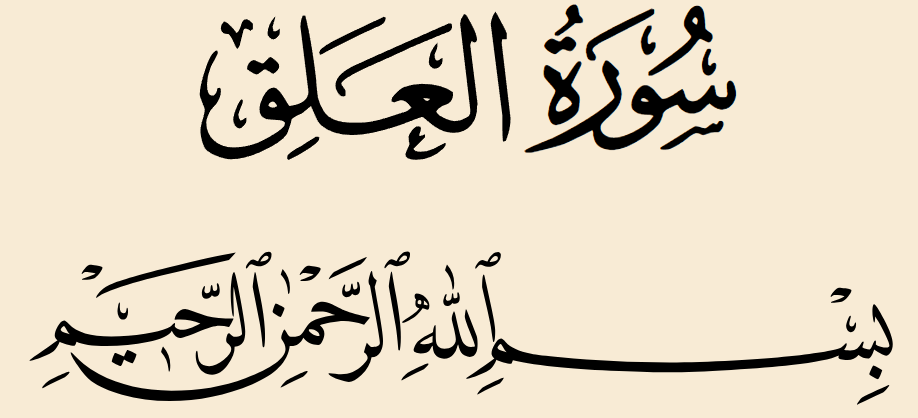 سُورَةُ العَلَقِ
بِسْمِ ٱللَّهِ ٱلرَّحْمَٰنِ ٱلرَّحِيمِ